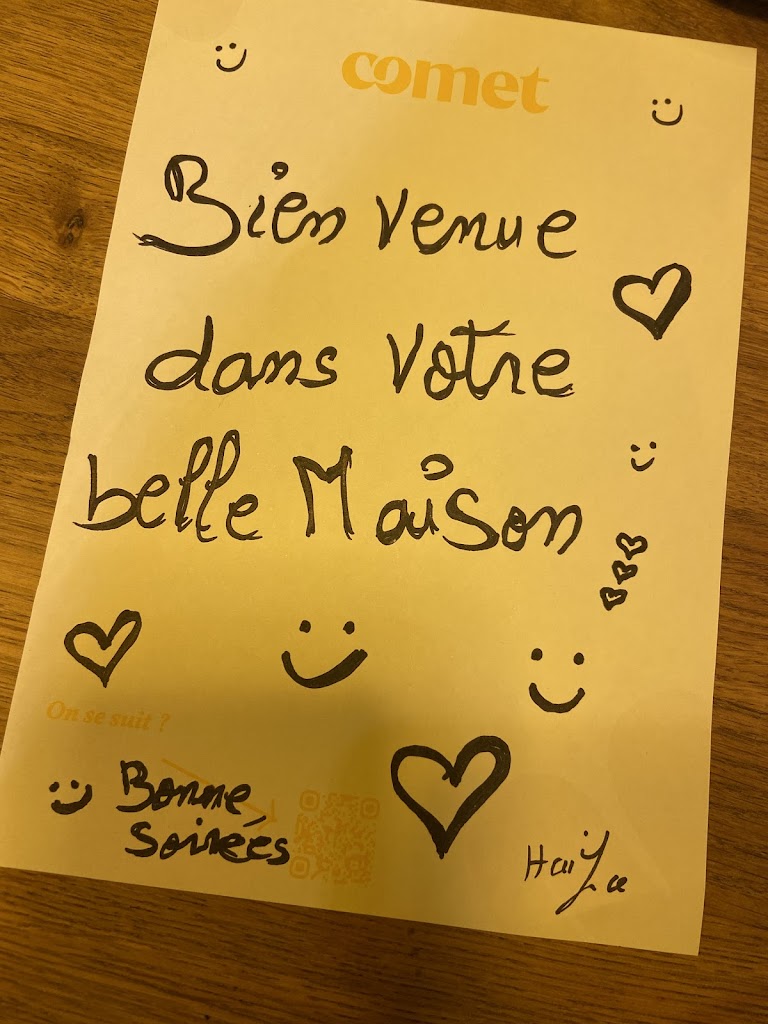 comet
Bien venue
dans votre
belle Maison
On se suit ?
Bonne
soireés